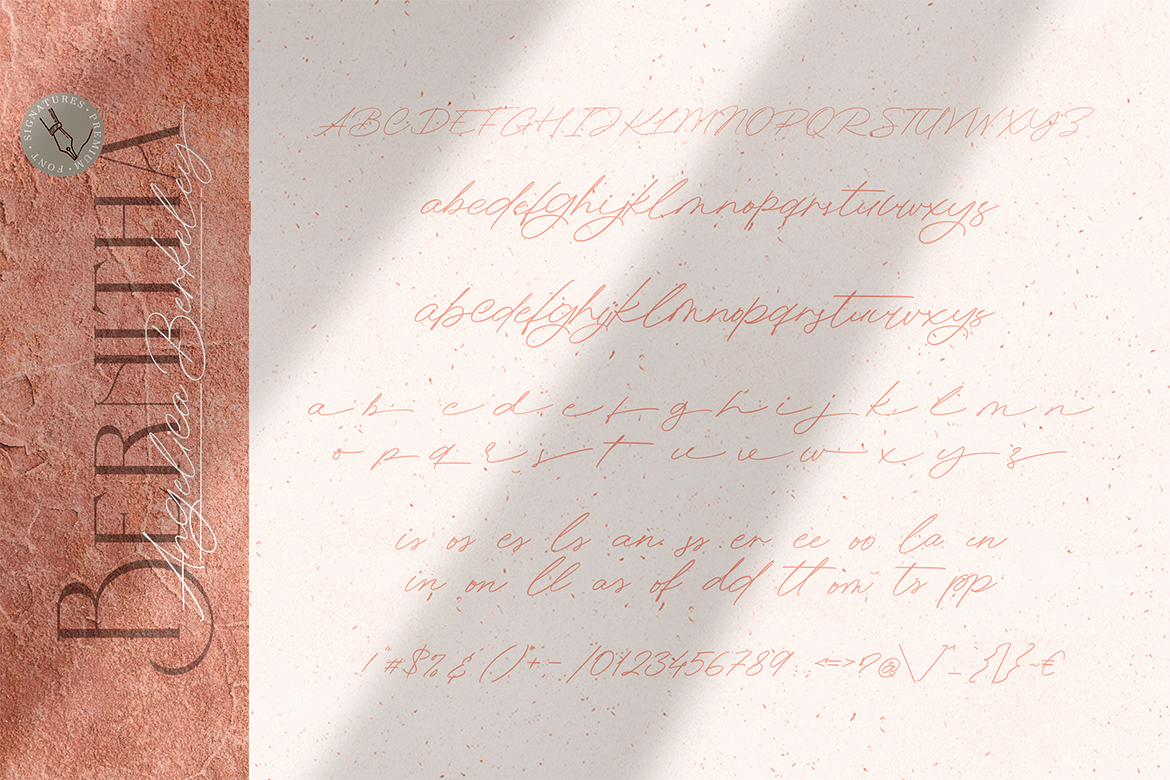 SIGNATURES • PREMIUM FONT •
BERNITHA
Angelica Berkeley
ABCDEFGHIJKLMNOPQRSTUVWXYZ
abcdefghijklmnopqrstuvwxyz
abcdefghijklmnopqrstuvwxyz
a b c d e f g h i j k l m n
o p q r s t u v w x y z
is os es ls an ss er ee oo la en
in on ll as of dd tt om ts pp
! " # $ % & ( ) * + - / 0123456789 : < = > ? @ \ ] ^ _ { | } ~ €